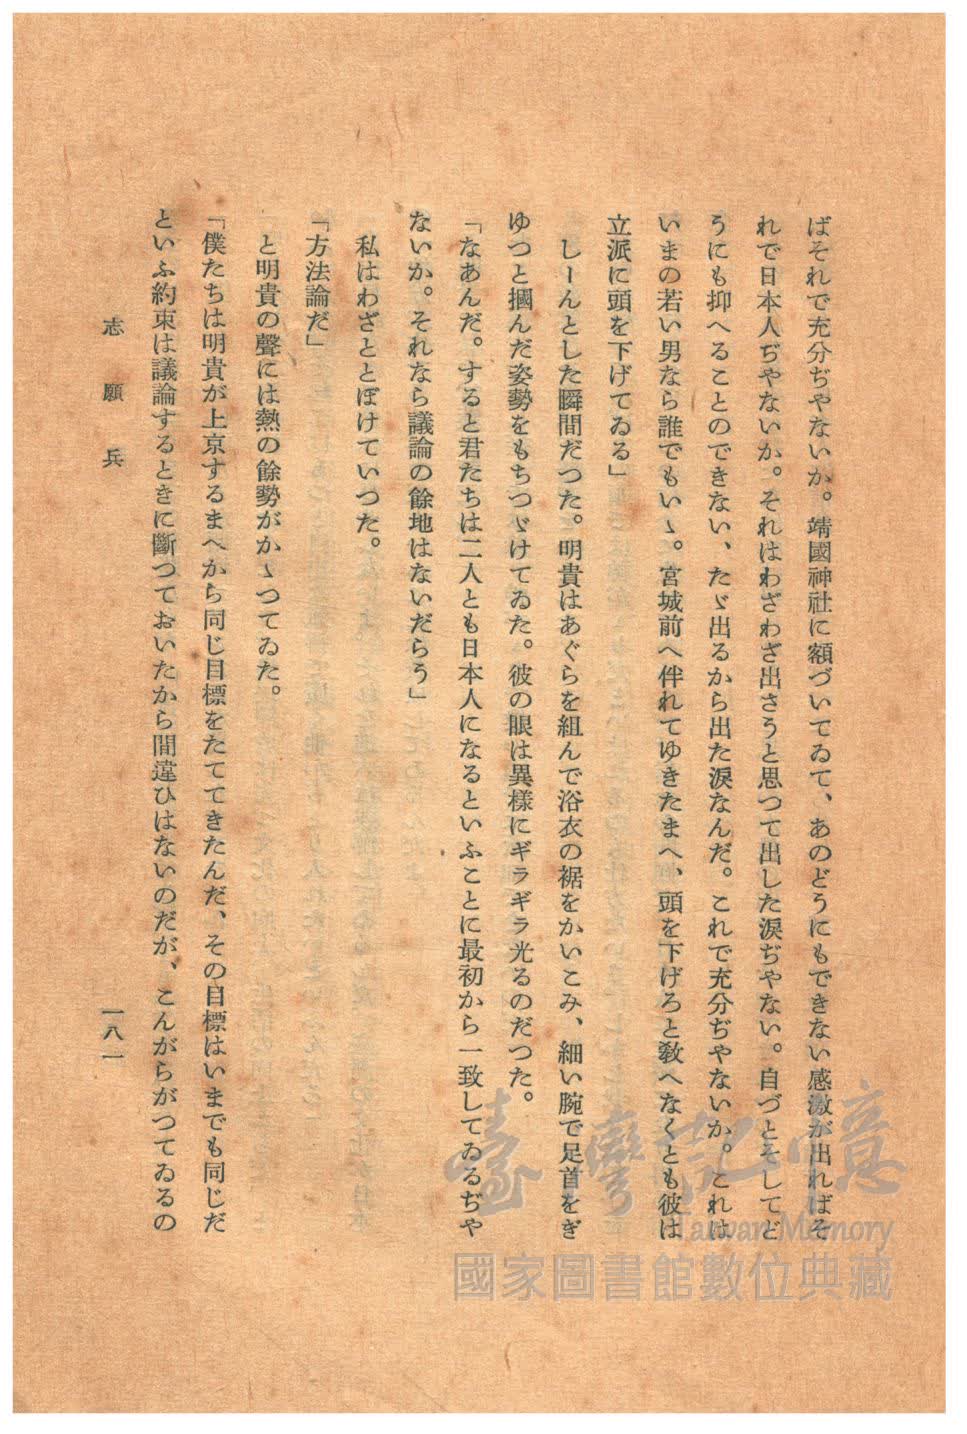 ばそれで充分ぢやないか。靖國神社に額づいてゐて、あのどうにもできない感激が出ればそ
れで日本人ぢやないか。それはわざわざ出さうと思つて出した涙ぢやない。自づとそしてど
うにも抑へることのできない、たゞ出るから出た涙なんだ。これで充分ぢやないか。これは
いまの若い男なら誰でもいゝ。宮城前へ伴れてゆきたまへ、頭を下げろと教へなくとも彼は
立派に頭を下げてゐる」
しーんとした瞬間だつた。明貴はあぐらを組んで浴衣の裾をかいこみ、細い腕で足首をぎ
ゆつと摑んだ姿勢をもちつゞけてゐた。彼の眼は異樣にギラギラ光るのだつた。
「なあんだ。すると君たちは二人とも日本人になるといふことに最初から一致してゐるぢや
ないか。それなら議論の餘地はないだらう」
私はわざととぼけていつた。
「方法論だ」
と明貴の聲には熱の餘勢がかゝつてゐた。
「僕たちは明貴が上京するまへから同じ目標をたててきたんだ、その目標はいまでも同じだ
といふ約束は議論するときに斷つておいたから間違ひはないのだが、こんがらがつてゐるの
志願兵
一八一
臺灣記憶
Taiwan Memory
國家圖書館數位典藏